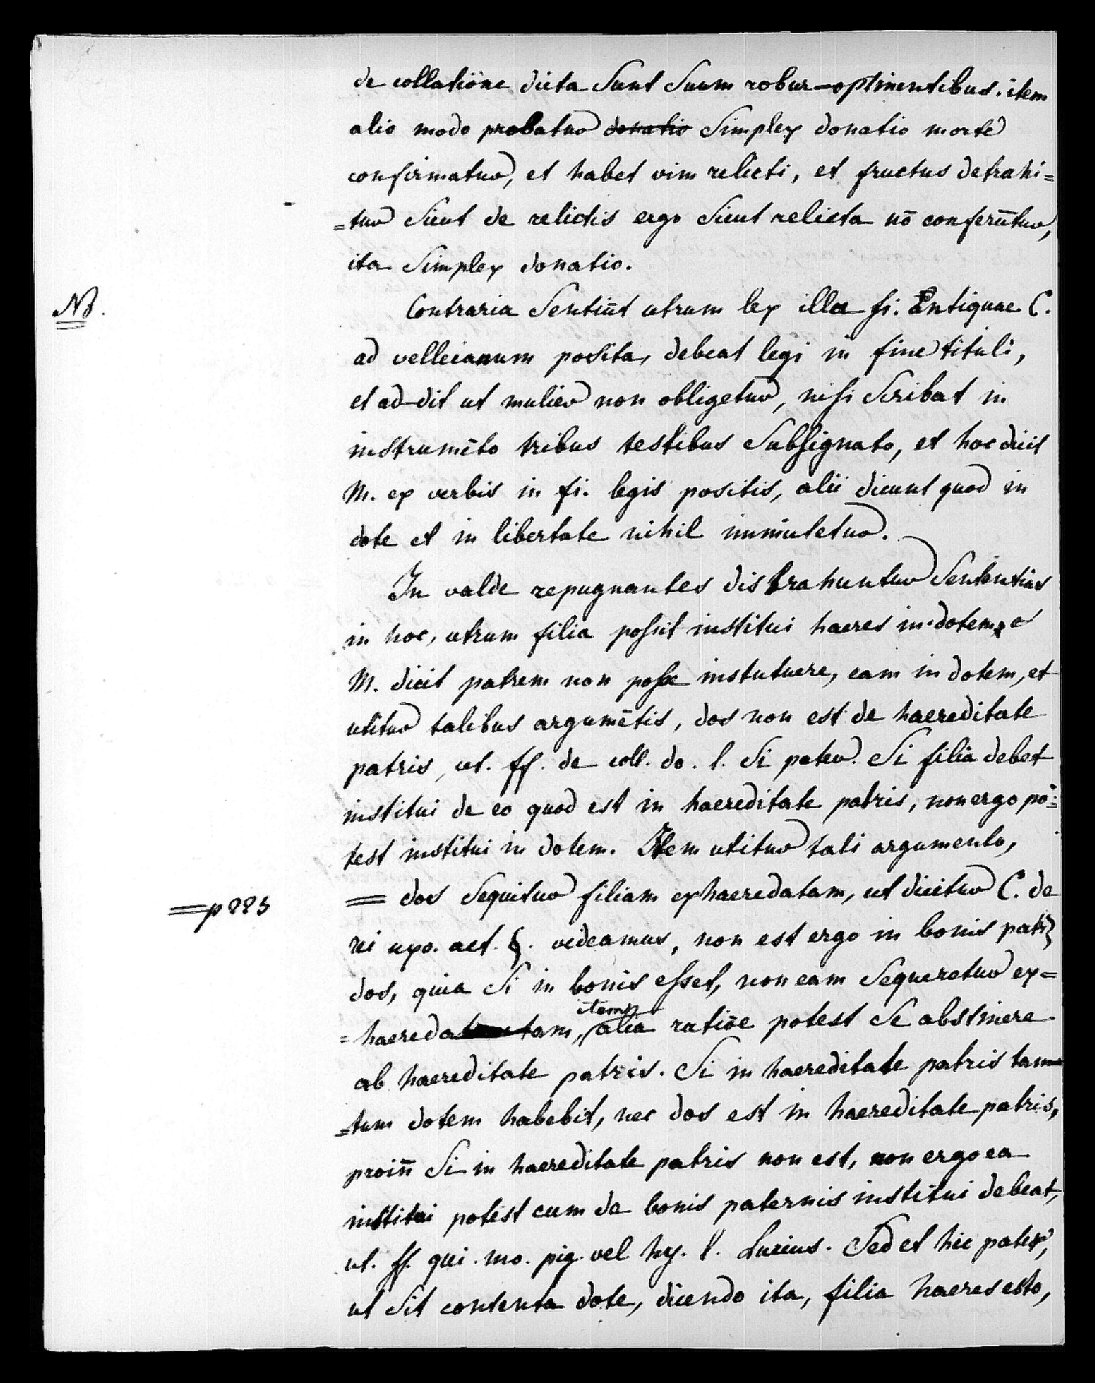 de collatiōne dicta sunt suum robur optinentibus. item
alio modo probatur donatio simplex donatio morte
confirmatur, et habet vim relicti, et fructus detrahi=
=tur sicut de relictis ergo sicut relicta nō conferūtur,
ita simplex donatio.
NB.
Contraria sentiūt utrum lex illa fi. Antiquae C.
ad velleianum posita, debeat legi in fine tituli,
et addit ut mulier non obligetur, nisi scribat in
instrumēto tribus testibus subsignato, et hoc dicit
M. ex verbis in fi. legis positis, alii dicunt quod in
dote et in libertate nihil inmutetur.
In valde repugnantes distrahuntur sententias
in hoc, utrum filia possit institui haeres in dotem,
M. dicit patrem non posse instutuere, eam in dotem, et
utitur talibus argumētis, dos non est de haereditate
patris, ut. ff. de coll. do. l. si pater. Si filia debet
institui de eo quod est in haereditate patris, non ergo po=
test institui in dotem. Item utitur tali argumento,
=p 225
= dos sequitur filiam exhaeredatam, ut dicitur C. de
rei uxo. act. §. videamus, non est ergo in bonis patris
dos, quia si in bonis esset, non eam sequeretur ex=
=haeredatam, item alia ratiōe potest se abstinere
ab haereditate patris. Si in haereditate patris tam
=tum dotem habebit, nec dos est in haereditate patris,
proin̄ si in haereditate patris non est, non ergo ea
institui potest cum de bonis paternis institui debeat,
ut. ff. qui. mo. pig. vel hy. l. Lucius. Sed et hic pater,
ut sit contenta dote, dicendo ita, filia haeres esto,